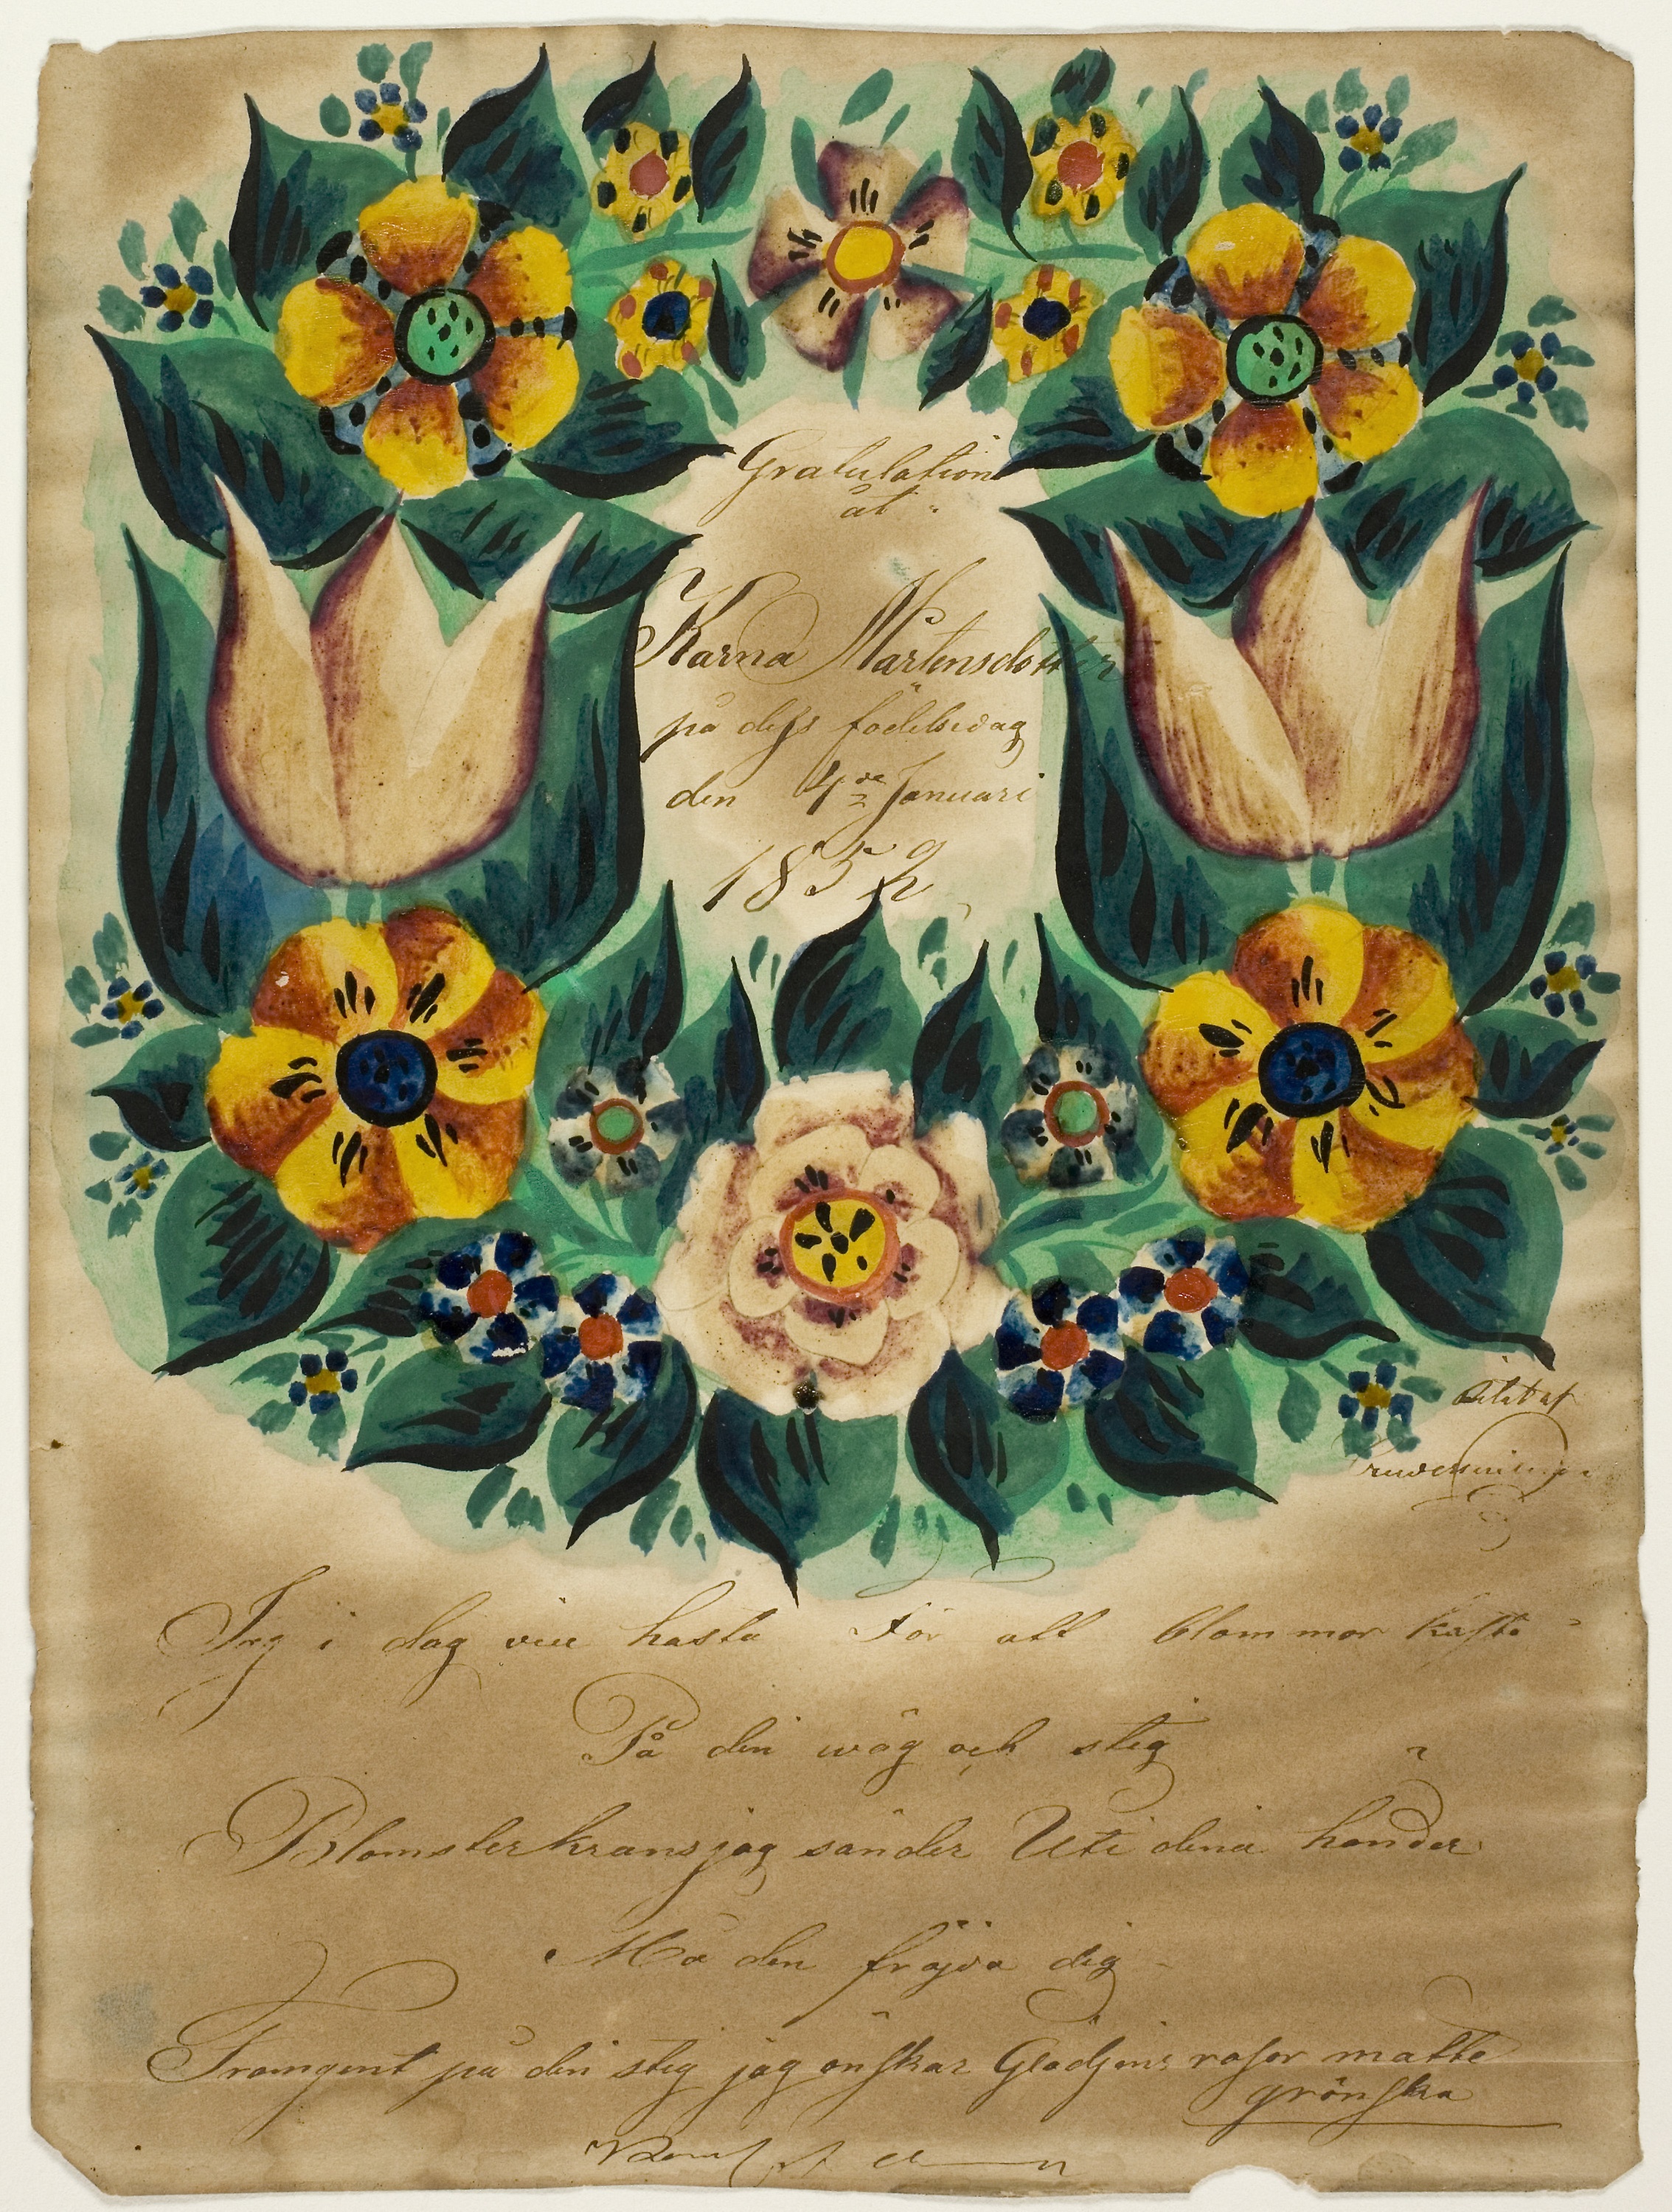 Gratulation
åt
Karna Mårtensdotter
på dess födelsedag
den 4de Januari
1852
Jag i dag vill hasta För att blommor kasta
På din wäg och stig
Blomsterkrans jag sänder Uti dina händer
Må den fröjda dig
Framgent på din stig jag önskar Glädjens rosor måtte
grönska